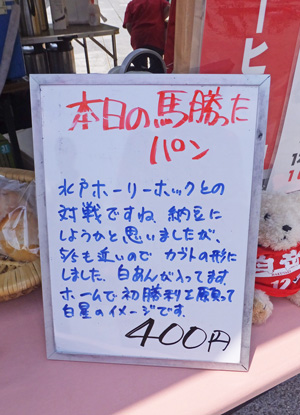 本日の馬勝った
パン
水戸ホーリーホックとの
対戦ですね 納豆に
しようかと思いましたが、
5/5も近いので カブトの形に
しました。白あんが入ってます
ホームで初勝利を願って
白星のイメージです。
400円